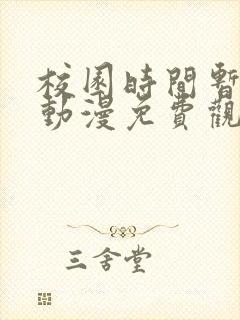 校園時間暫
動漫免費觀
三舍堂